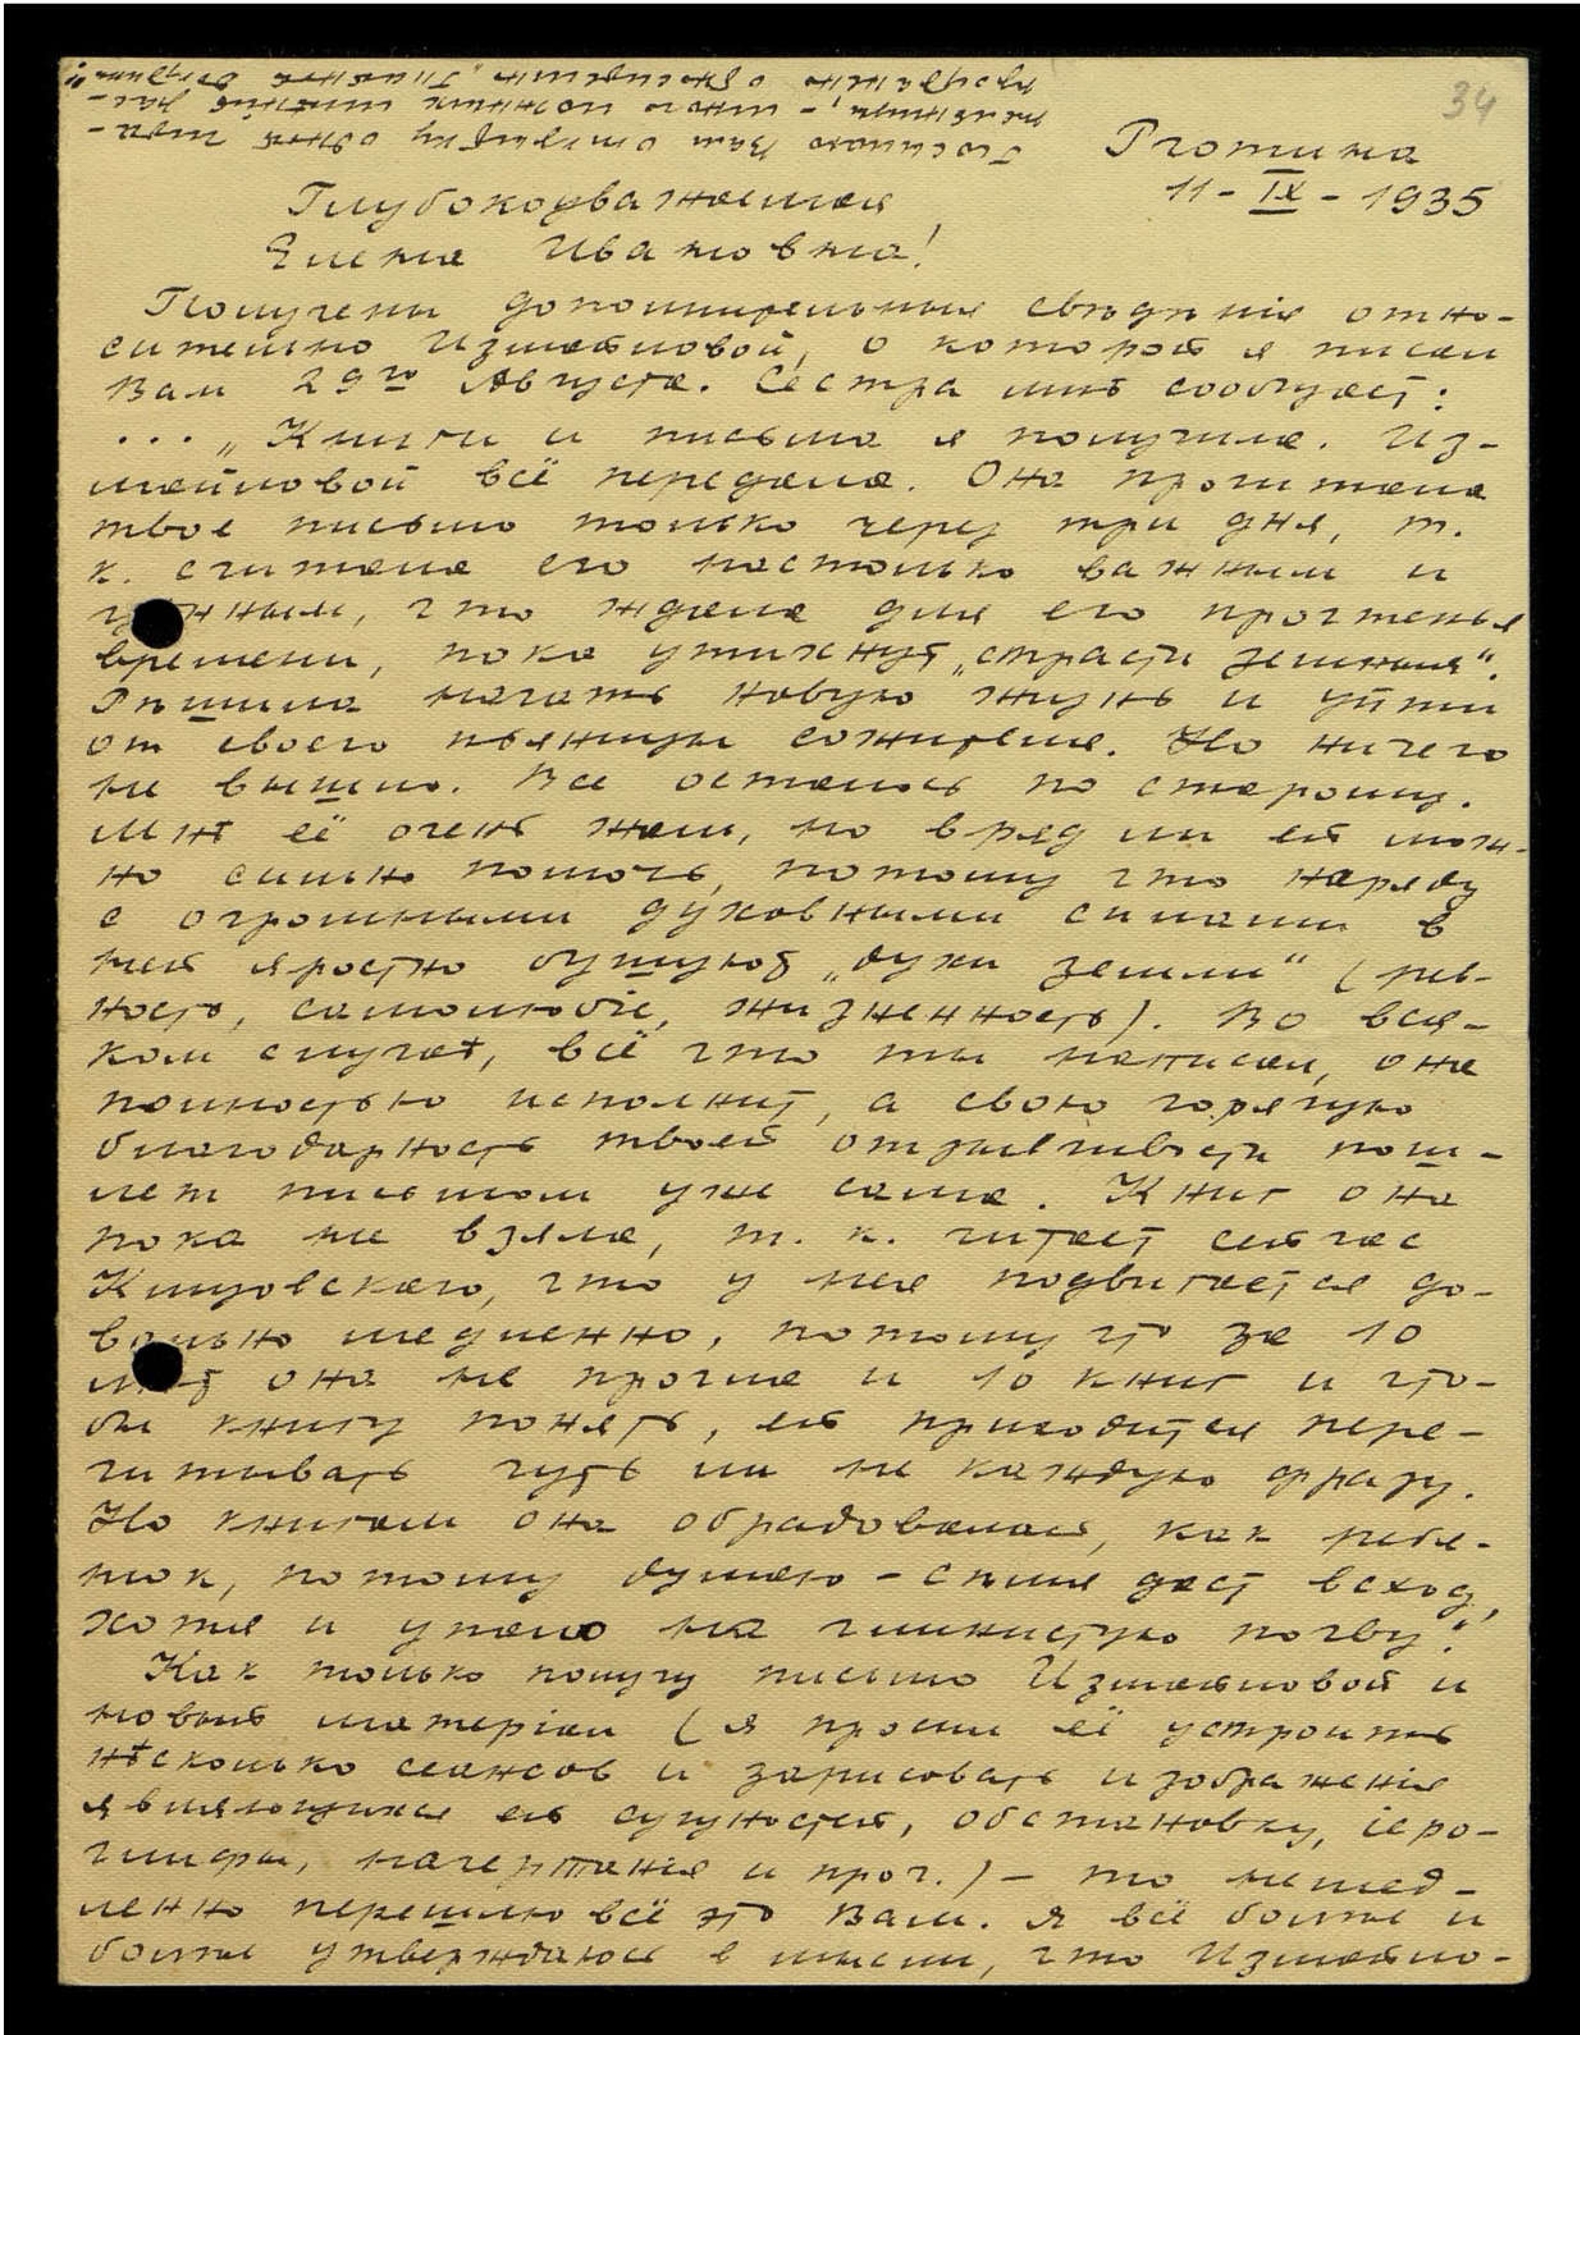 34
Рготина
11 - IX - 1935
Глубокоуважаемая
Елена Ивановна!
Получены дополнительныя свѣдѣнія отно-
сительно Измайловой, о которой я писал
Вам 29го Августа. Сестра мнѣ сообщает:
... „Книги и письма я получила. Из-
майловой всё передала. Она прочитала
твое письмо только через три дня, т.
к. считала его настолько важным и
нужным, что ждала для его прочтенья
времени, пока утихнут „страсти земныя“.
Рѣшила начать новую жизнь и уйти
от своего пьяницы сожителя. Но ничего
не вышло. Все осталось по старому.
Мнѣ её очень жаль, но вряд ли ей мож-
но сильно помочь, потому что наряду
с огромными духовными силами в
ней яростно бушуют „духи земли“ (рев-
ность, самолюбіе, жизненность). Во вся-
ком случаѣ, всё что ты написал, она
полностью исполнит, а свою горячую
благодарность твоей отзывчивости пош-
лет письмом уже сама. Книг она
пока не взяла, т. к. читает сейчас
Клизовскаго, что у нея подвигается до-
вольно медленно, потому что за 10
лѣт она не прочла и 10 книг и что-
бы книгу понять, ей приходится пере-
читывать чуть ли не каждую фразу.
Но книгам она обрадовалась, как ребе-
нок, потому думаю - сѣмя даст всход,
хотя и упало на глинистую почву.“
Как только получу письмо Измайловой и
новый матеріал (я просил её устроить
нѣсколько сеансов и зарисовать изображенія
являющихся ей сущностей, обстановку, іеро-
глифы, начертанія и проч.) - то немед-
ленно перешлю всё это Вам. Я всё болѣе и
болѣе утверждаюсь в мысли, что Измайло-
Посылаю Вам открытку одной
рас-